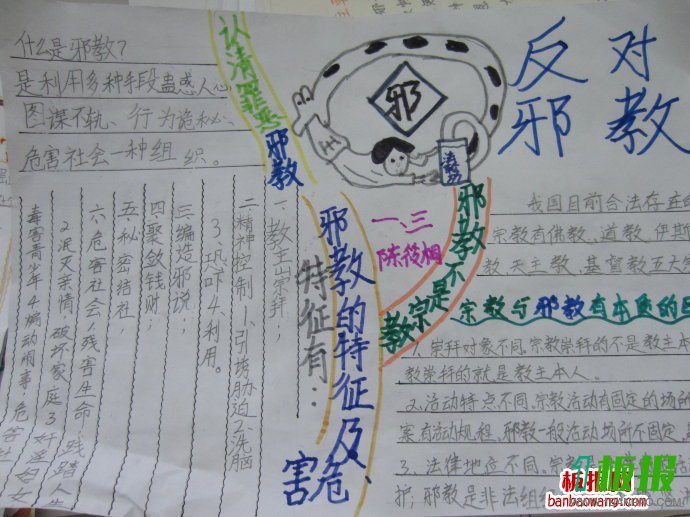 什么是邪教?
是利用多种手段蛊惑人心
图谋不轨、行为诡秘、
危害社会一种组织。
认清罪恶邪教
邪
反对
邪教
一、三
邪教不是宗教
邪教的特征及危害
特征有:
一教主崇拜;
二精神控制1、引诱胁迫2、洗脑
3、恐吓4、利用。
三编造邪说;
四聚敛钱财;
五秘密结社
六危害社会1残害生命
2泯灭亲情、破坏家庭3奸淫妇女
毒害青少年4煽动闹事,危害社
我国目前合法存在的
宗教有佛教、道教、伊斯
教、天主教、基督教五大
宗教与邪教有本质的区
1、崇拜对象不同。宗教崇拜的不是教主本
教崇拜的就是教主本人。
2、活动特点不同。宗教活动有固定的场所
案有活动规程、邪教一般活动场所不固定,
3、法律地位不同。宗教
护;邪教是非法组织
板报
板报网
banbaowang.com